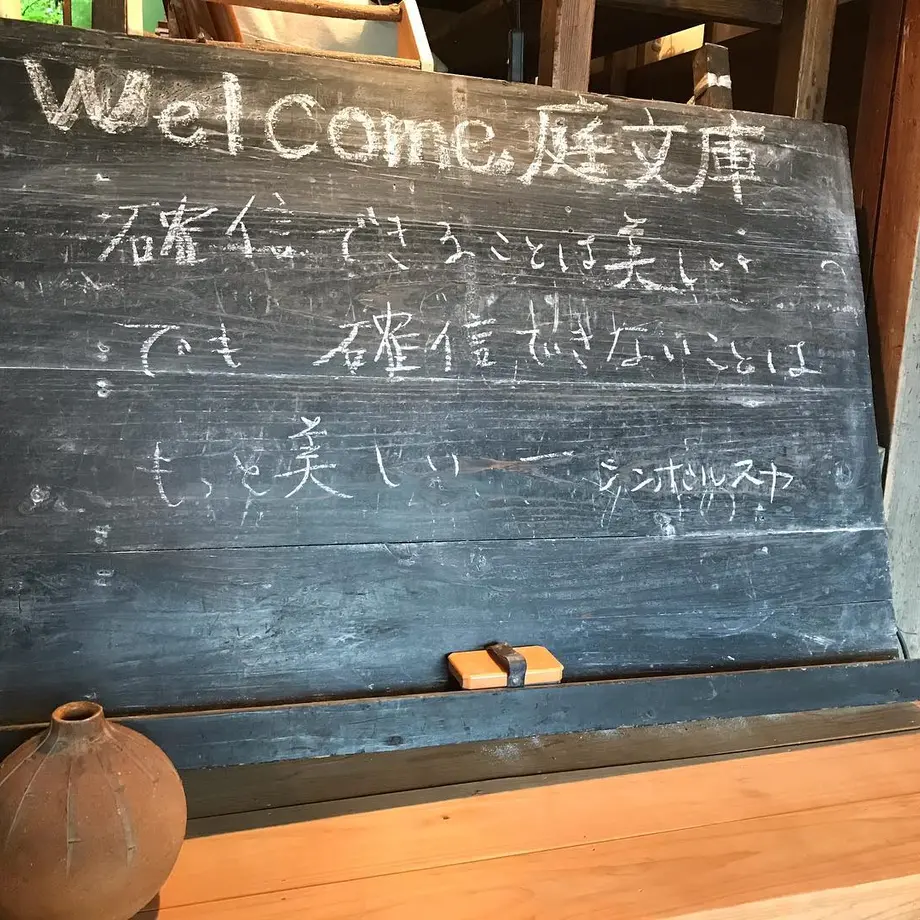 Welcome 庭文庫
確信できることは美しい
でも 確信できないことは
もっと美しい ー シンボルスカ